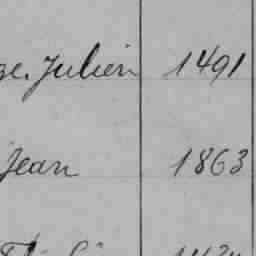 ge. Julien 1491
Jean 1863